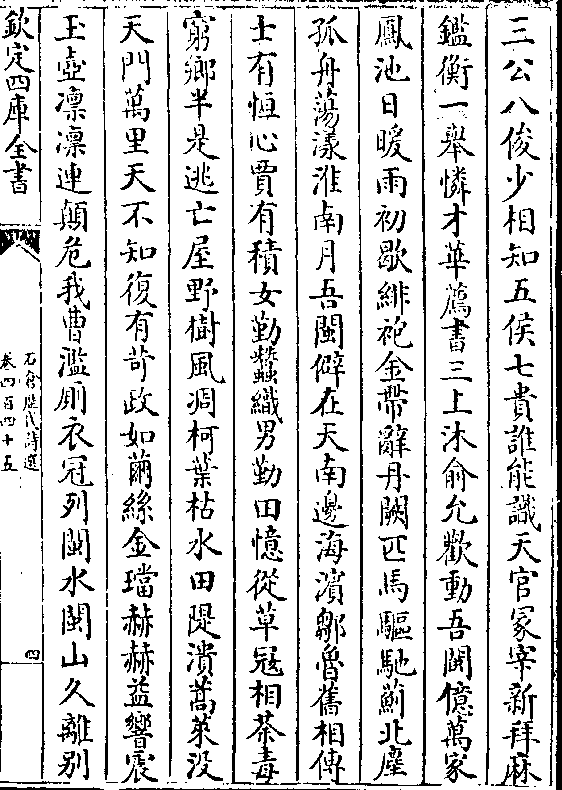 三公八俊少相知五侯七貴誰能識天官冢宰新拜麻
鑑衡一舉憐才華薦書三上沐俞允歡動吾閩億萬家
鳳池日暖雨初歇緋袍金帶辭丹闕匹馬驅馳薊北塵
孤舟蕩漾淮南月吾閩僻在天南邊海濱鄒魯舊相傳
士有恒心賈有積女勤蠶織男勤田憶從草冦相荼毒
窮鄉半是逃亡屋野樹風凋柯葉枯水田隄潰蒿萊没
天門萬里天不知復有苛政如繭絲金璫赫赫益響震
玉壺凛凛連顛危我曹濫厠衣冠列閩水閩山久離别
欽定四庫全書
石倉歷代詩選
卷四百四十五
四